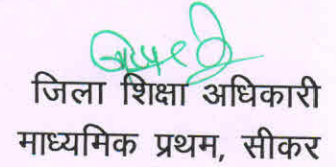 जिला शिक्षा अधिकारी
माध्यमिक प्रथम, सीकर